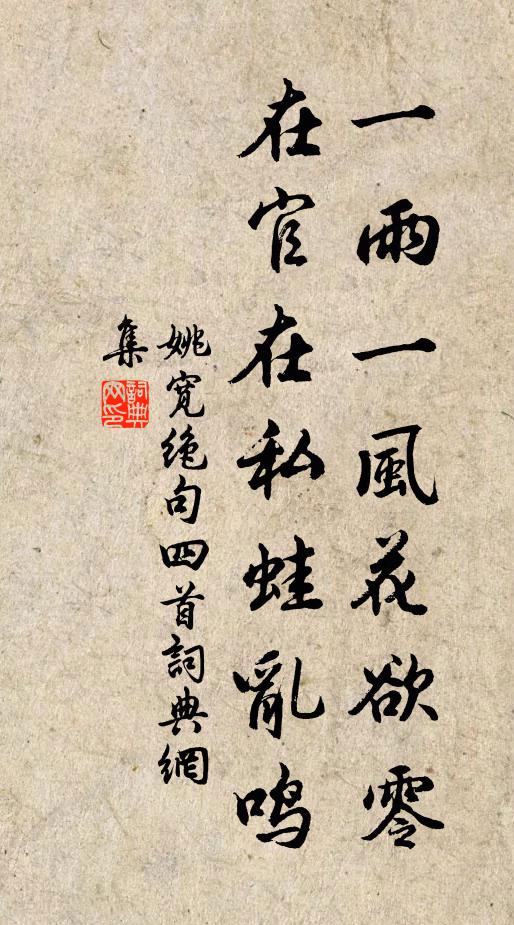 一雨一風花欲零
在官在私蛙亂鳴
姚寬絶句四首詞典網
集
詞典
网印